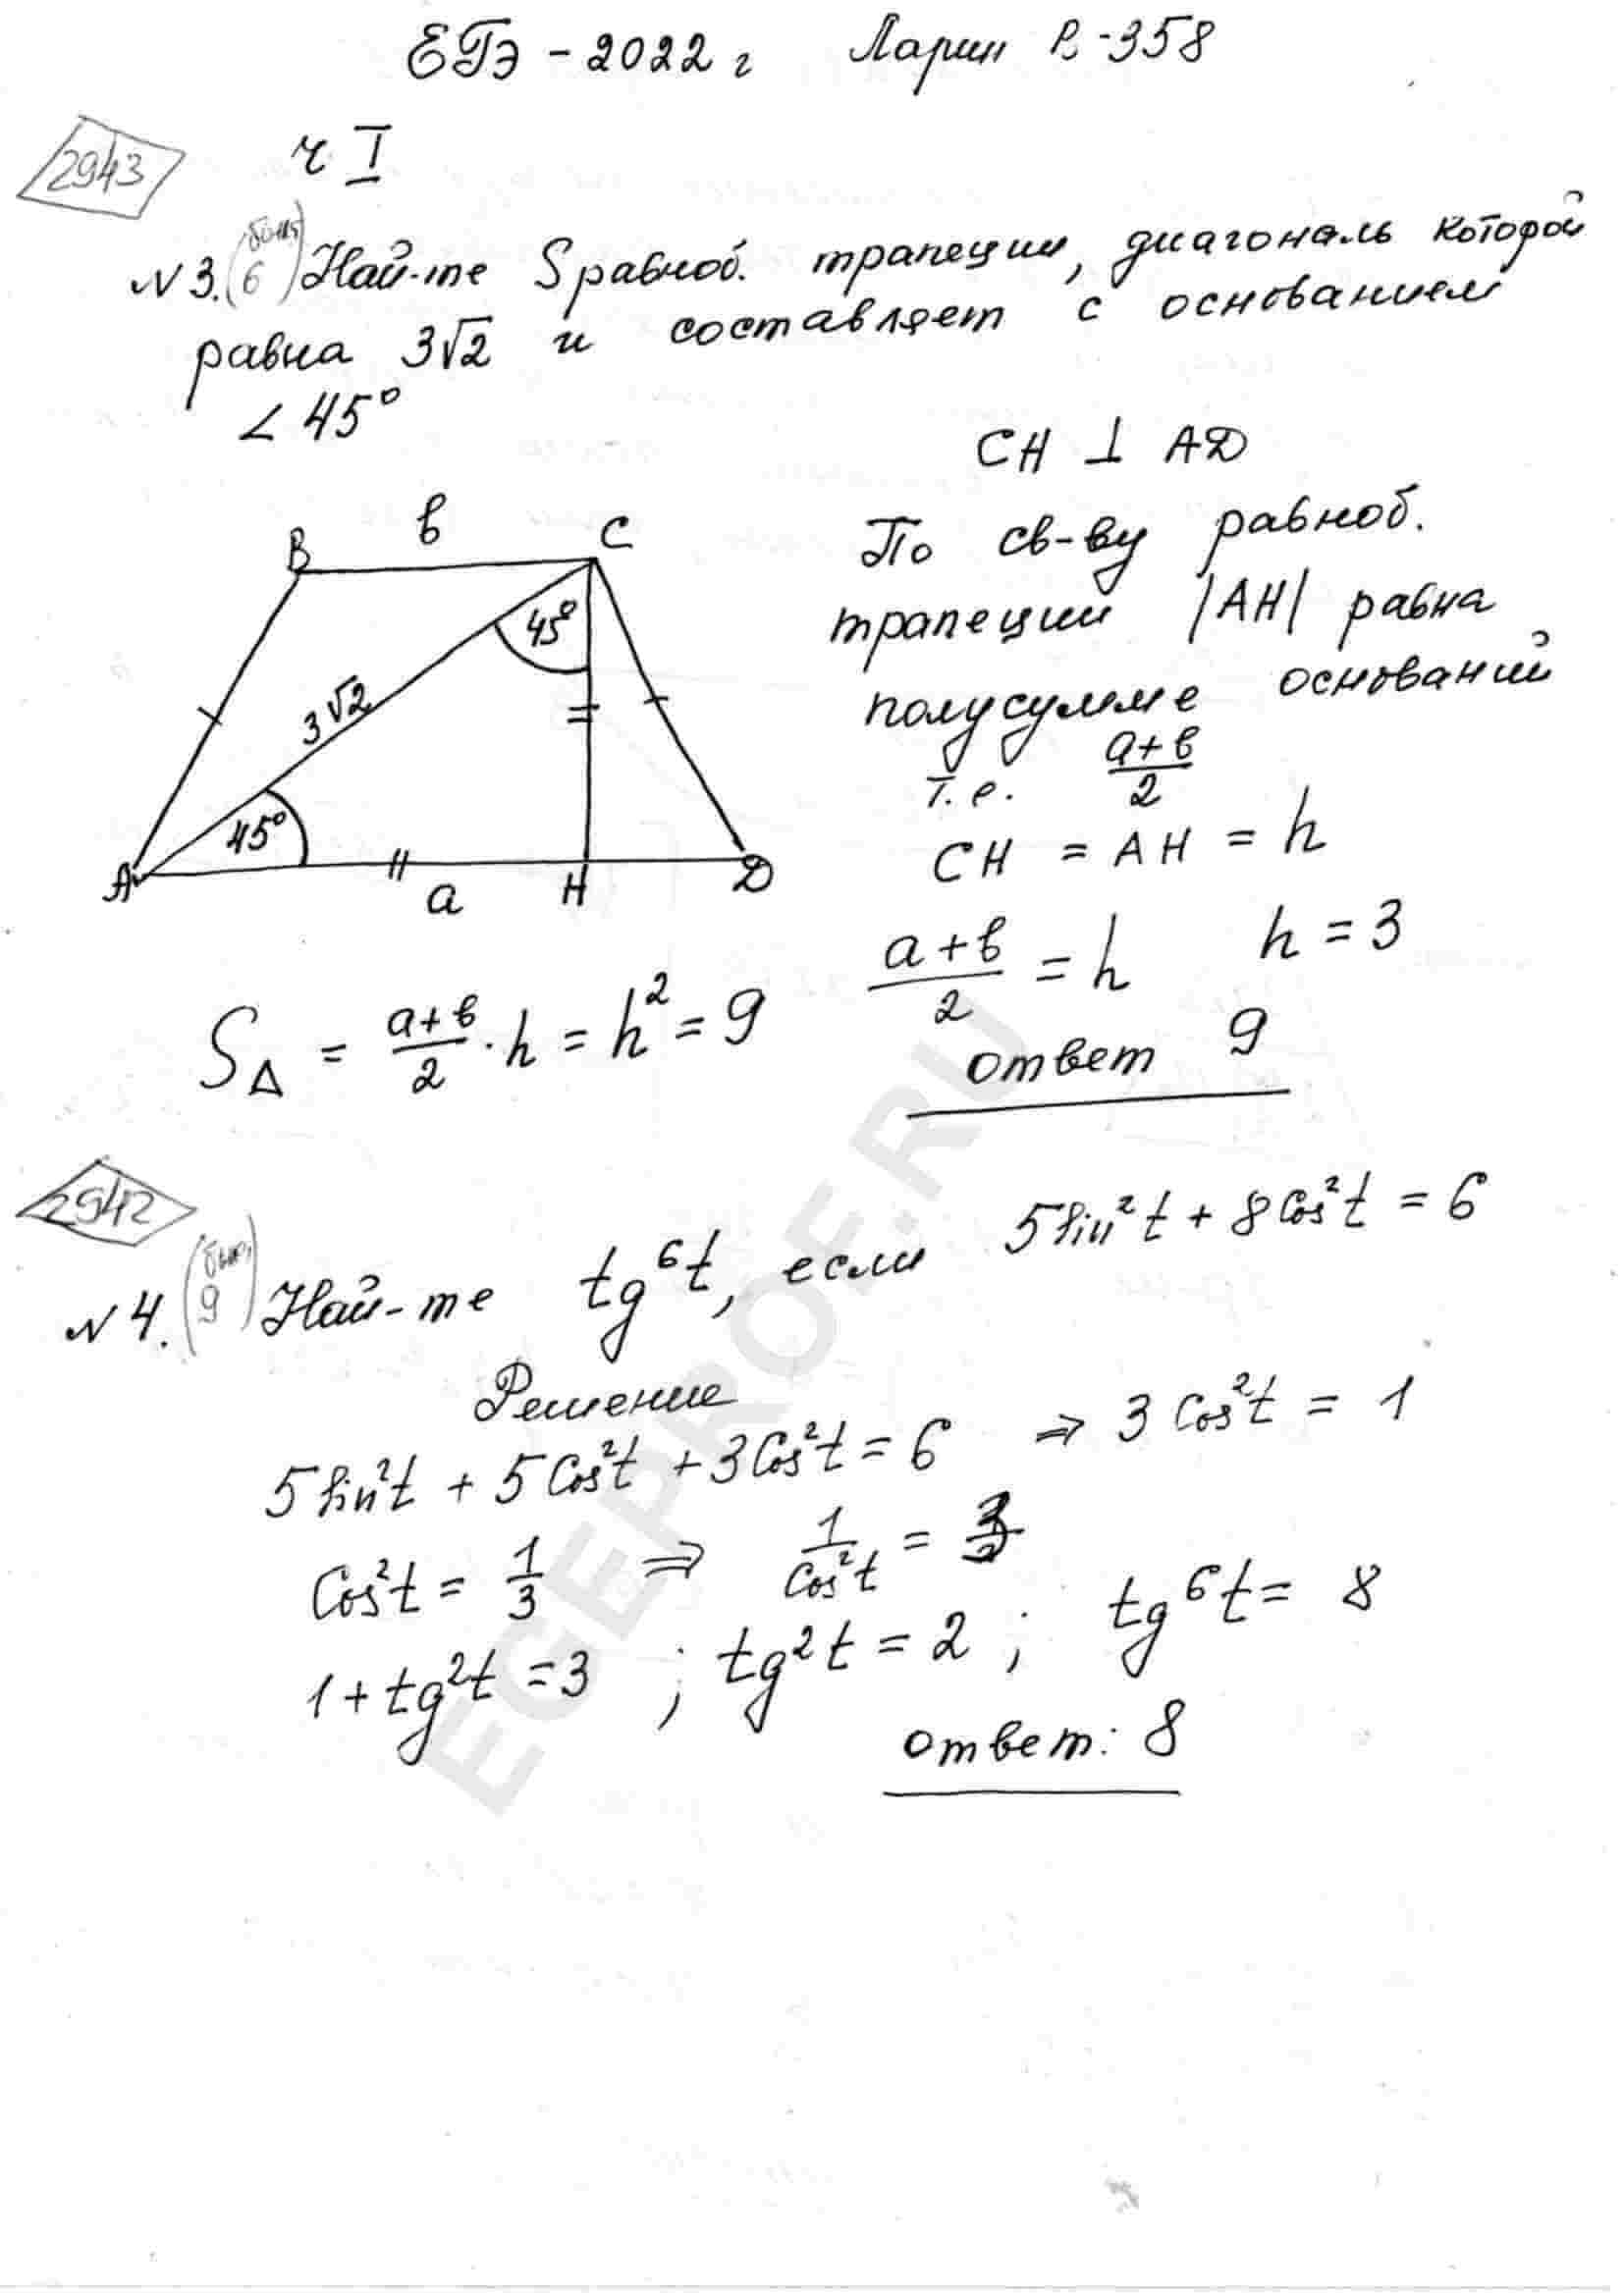 ЕГЭ - 2022 г Ларин В-358
2943
ч I
№3. (6) Най-те S равноб. трапеции, диагональ которой
равна 3√2 и составляет с основанием
∠ 45°
CH ⊥ AD
По св-ву равноб.
трапеции |AH| равна
полусумме оснований
т.е. (a+в)/2
CH = AH = h
(a+в)/2 = h h = 3
B в C
45°
3√2
45°
A a H D
S△ = (a+в)/2 · h = h² = 9
ответ 9
2942
№4. (9) Най-те tg⁶t, если 5sin²t + 8cos²t = 6
Решение
5sin²t + 5cos²t + 3cos²t = 6 ⇒ 3cos²t = 1
cos²t = 1/3 ⇒ 1/cos²t = 3
1 + tg²t = 3 ; tg²t = 2 ; tg⁶t = 8
ответ: 8
EGEPROF.RU